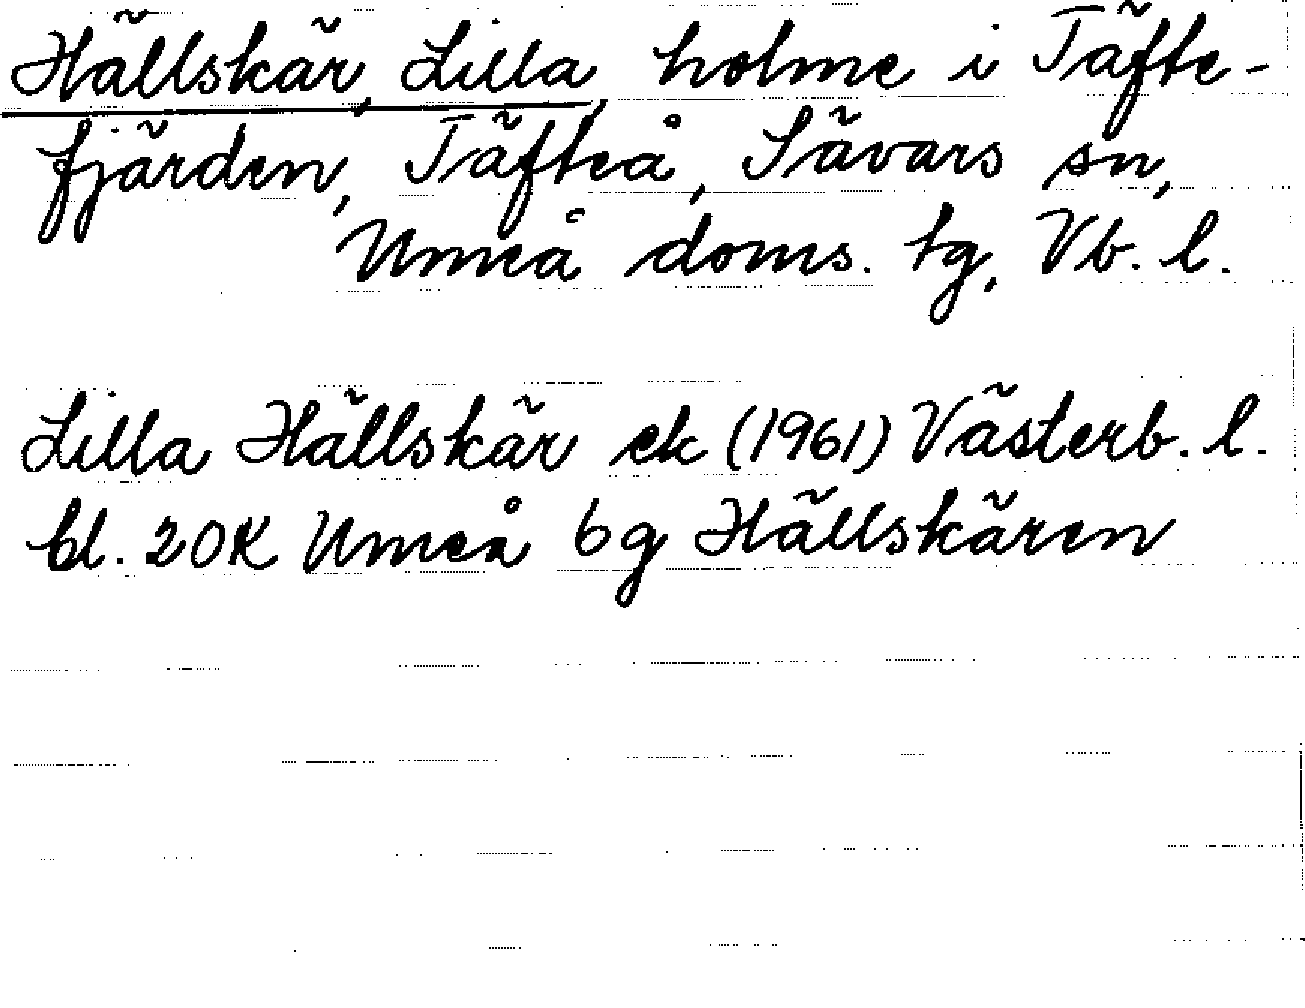 Hällskär, Lilla, holme i Täfte-
fjärden, Täfteå, Sävars sn,
Umeå doms. tg, Vb. l.
Lilla Hällskär ek (1961) Västerb. l.
bl. 20K Umeå 6g Hällskären